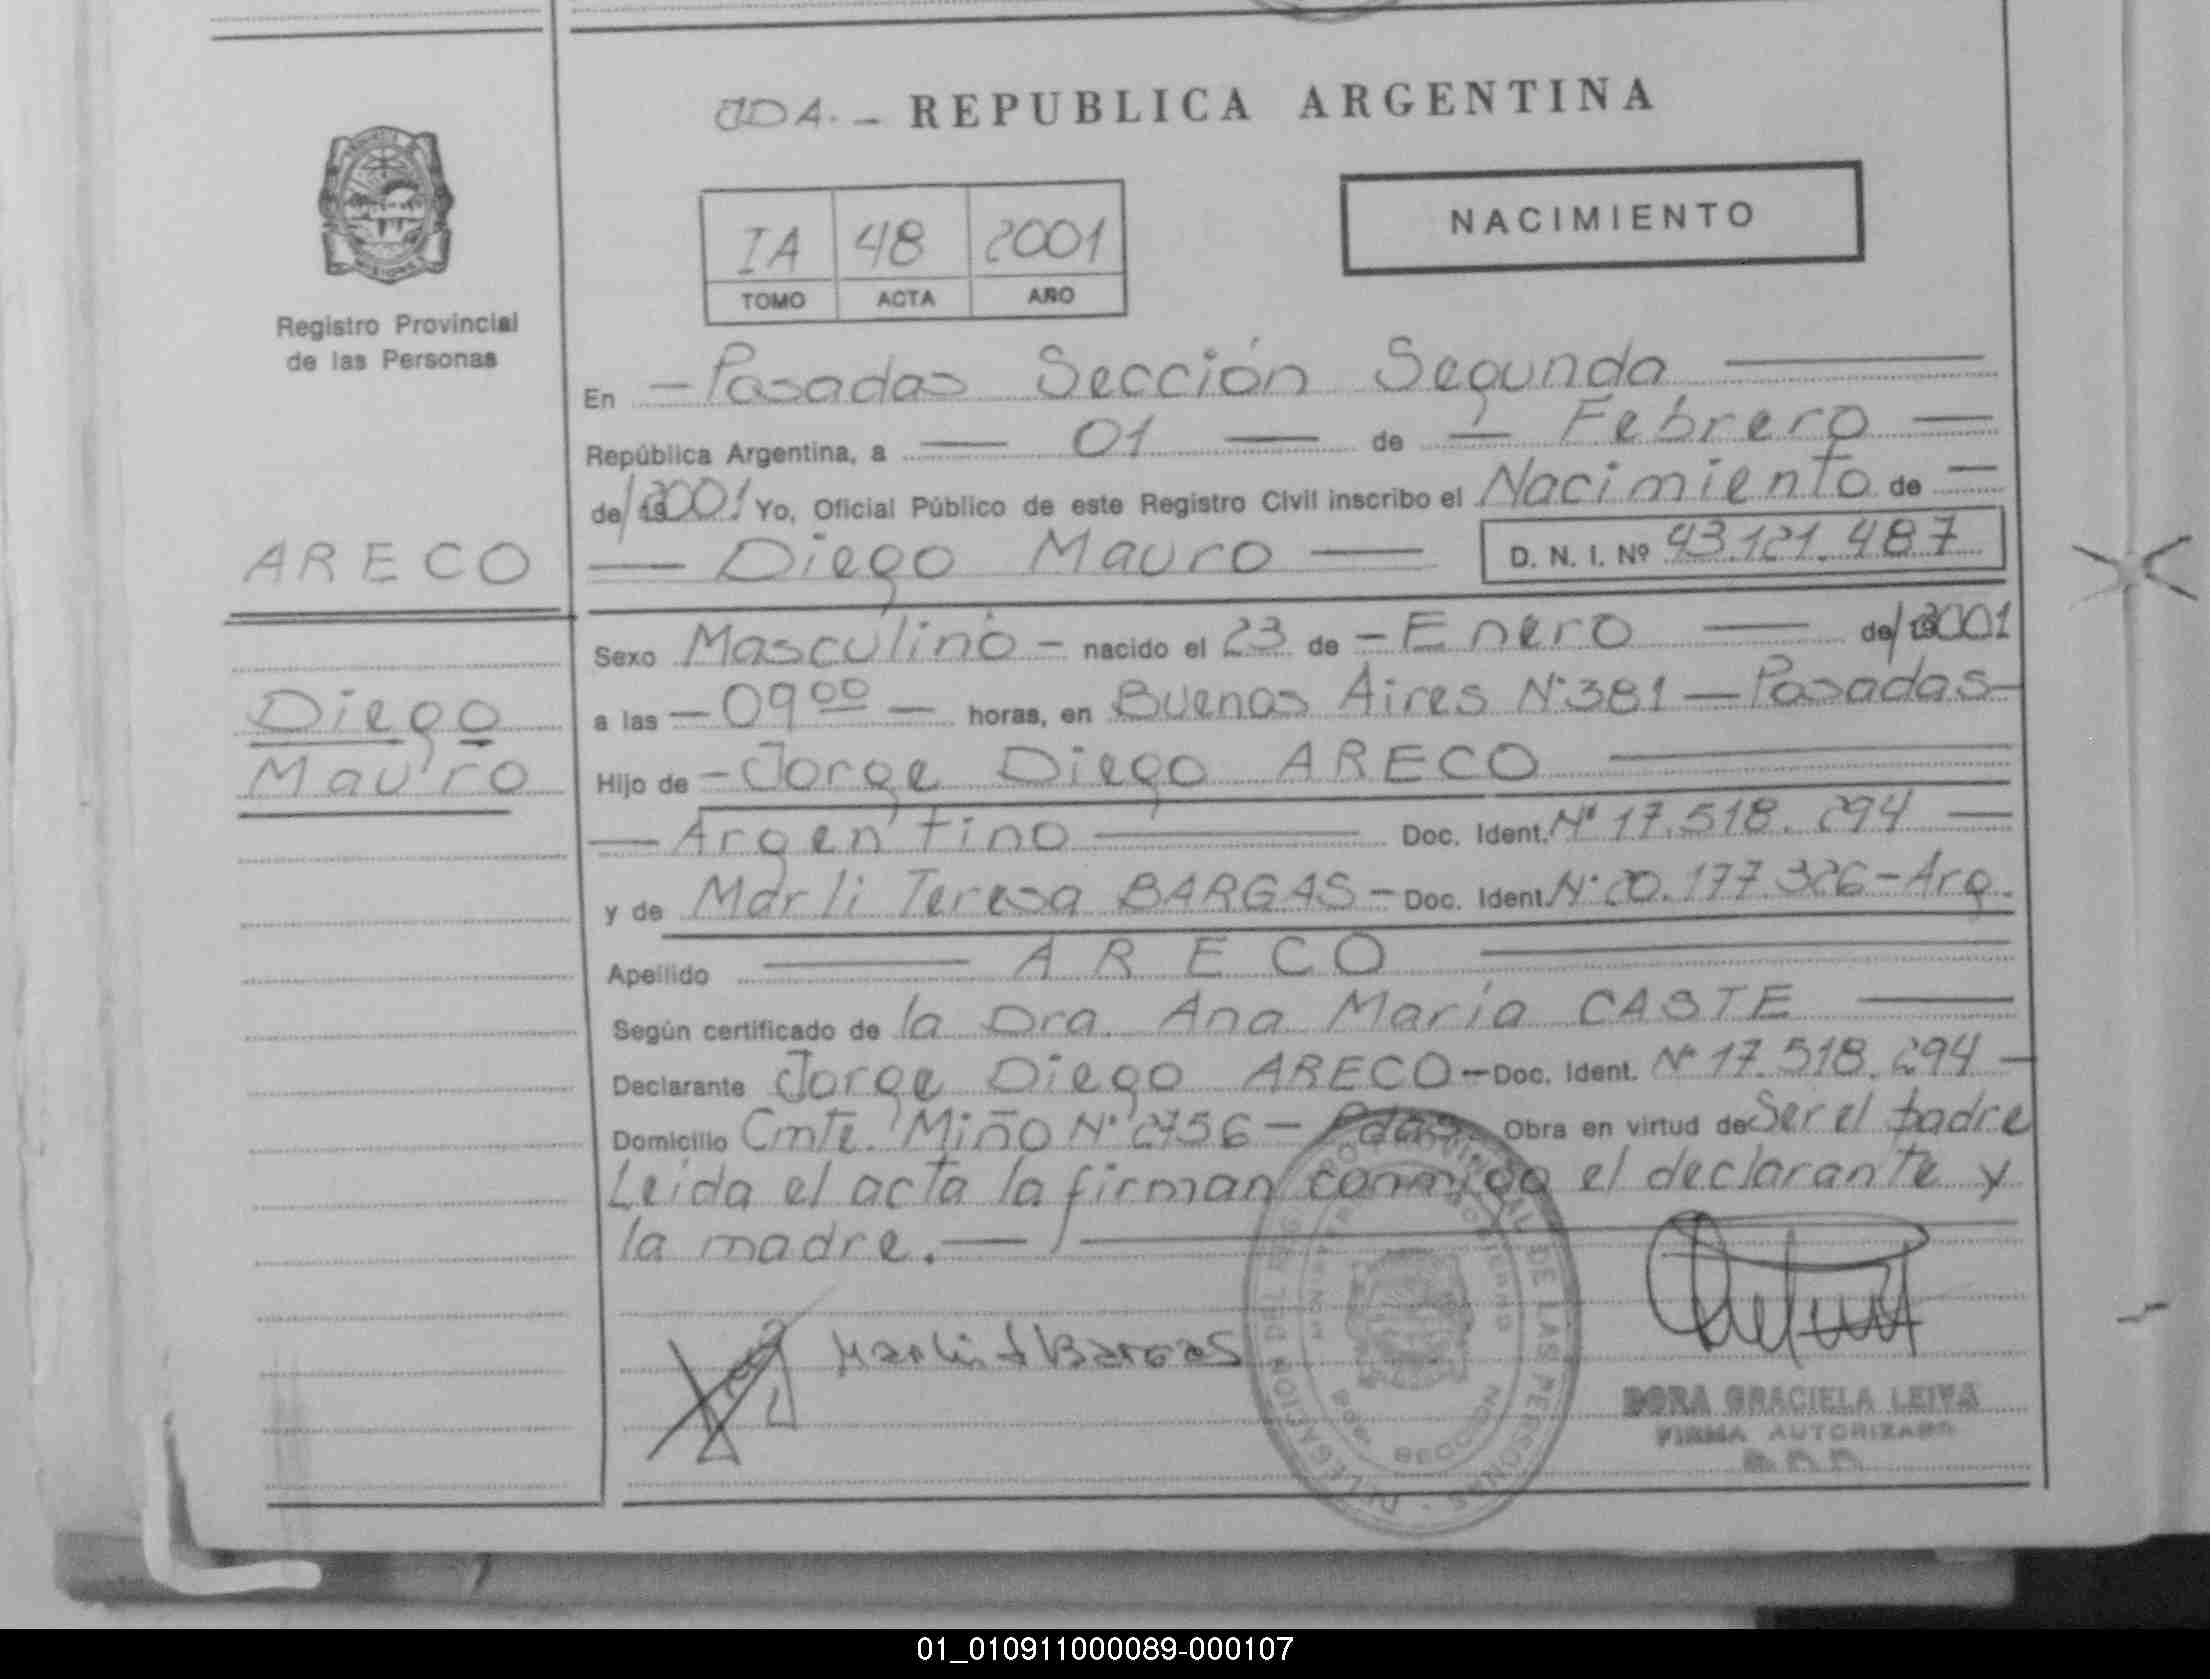 JDA. - REPUBLICA ARGENTINA
IA 48 2001
TOMO ACTA AÑO
NACIMIENTO
Registro Provincial
de las Personas
En - Posadas Sección Segunda
República Argentina, a 01 de Febrero
de 2001 Yo, Oficial Público de este Registro Civil inscribo el Nacimiento de
ARECO
Diego Mauro D. N. I. Nº 43.121.487
Diego
Mauro
Sexo Masculino - nacido el 23 de - Enero de 2001
a las - 09 00 - horas, en Buenos Aires Nº 381 - Posadas -
Hijo de - Jorge Diego ARECO
Argentino Doc. Ident. Nº 17.518.294
y de Marli Teresa BARGAS - Doc. Ident. Nº 20.177.326 - Arg.
Apellido ARECO
Según certificado de la Dra. Ana María CASTE
Declarante Jorge Diego ARECO - Doc. Ident. Nº 17.518.294 -
Domicilio Cmte. Miño Nº 2756 - Pdas. Obra en virtud de Ser el padre
Leida el acta la firman conmigo el declarante y
la madre.
Marli T Bargas
DELEGACION DEL REGISTRO PROVINCIAL DE LAS PERSONAS
2da. SECCION
DORA GRACIELA LEIVA
FIRMA AUTORIZADA
01_010911000089-000107